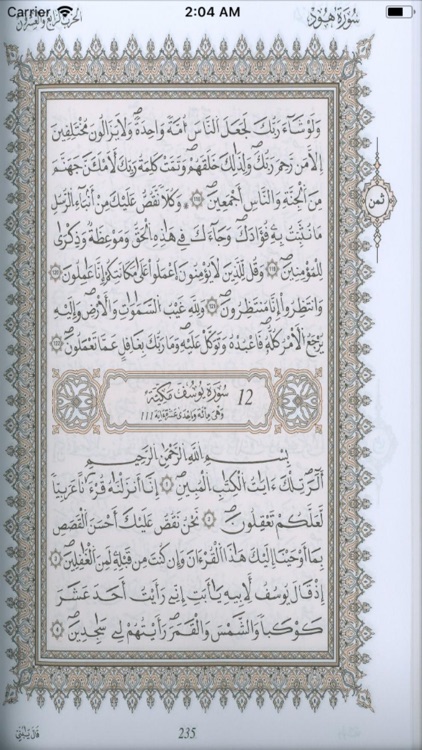 Carrier 2:04 AM
سُورَةُ هُودٍ
الحزب الرابع والعشرون
وَلَوْ شَآءَ رَبُّكَ لَجَعَلَ النَّاسَ أُمَّةً وَاحِدَةً وَلَا يَزَالُونَ مُخْتَلِفِينَ
إِلَّا مَن رَّحِمَ رَبُّكَ وَلِذَٰلِكَ خَلَقَهُمْ وَتَمَّتْ كَلِمَةُ رَبِّكَ لَأَمْلَأَنَّ جَهَنَّمَ
مِنَ الْجِنَّةِ وَالنَّاسِ أَجْمَعِينَ وَكُلًّا نَّقُصُّ عَلَيْكَ مِنْ أَنۢبَآءِ الرُّسُلِ
ثمن
مَا نُثَبِّتُ بِهِۦ فُؤَادَكَ وَجَآءَكَ فِي هَٰذِهِ الْحَقُّ وَمَوْعِظَةٌ وَذِكْرَىٰ
لِلْمُومِنِينَ وَقُل لِّلَّذِينَ لَا يُومِنُونَ اَعْمَلُوا عَلَىٰ مَكَانَتِكُمُۥ إِنَّا عَٰمِلُونَ
وَانتَظِرُوٓا إِنَّا مُنتَظِرُونَ وَلِلهِ غَيْبُ السَّمَٰوَٰتِ وَالْأَرْضِ وَإِلَيْهِ
يَرْجِعُ الْأَمْرُ كُلُّهُۥ فَاعْبُدْهُ وَتَوَكَّلْ عَلَيْهِ وَمَا رَبُّكَ بِغَٰفِلٍ عَمَّا تَعْمَلُونَ
12 سُورَةُ يُوسُفَ مَكِّيَّة
وَهِيَ مِائَة وَإِحْدَى عَشْرَةَ آيَة 111
بِسْمِ اللَّهِ الرَّحْمَٰنِ الرَّحِيمِ
أَلَٓرَ تِلْكَ ءَايَٰتُ الْكِتَٰبِ الْمُبِينِ إِنَّآ أَنزَلْنَٰهُ قُرْءَٰنًا عَرَبِيًّا
لَّعَلَّكُمْ تَعْقِلُونَ نَحْنُ نَقُصُّ عَلَيْكَ أَحْسَنَ الْقَصَصِ
بِمَآ أَوْحَيْنَآ إِلَيْكَ هَٰذَا الْقُرْءَانَ وَإِن كُنتَ مِن قَبْلِهِۦ لَمِنَ الْغَٰفِلِينَ
إِذْ قَالَ يُوسُفُ لِأَبِيهِ يَٰٓأَبَتِ إِنِّي رَأَيْتُ أَحَدَ عَشَرَ
كَوْكَبًا وَالشَّمْسَ وَالْقَمَرَ رَأَيْتُهُمْ لِي سَٰجِدِينَ
235
قَالَ يَٰبُنَيِّ